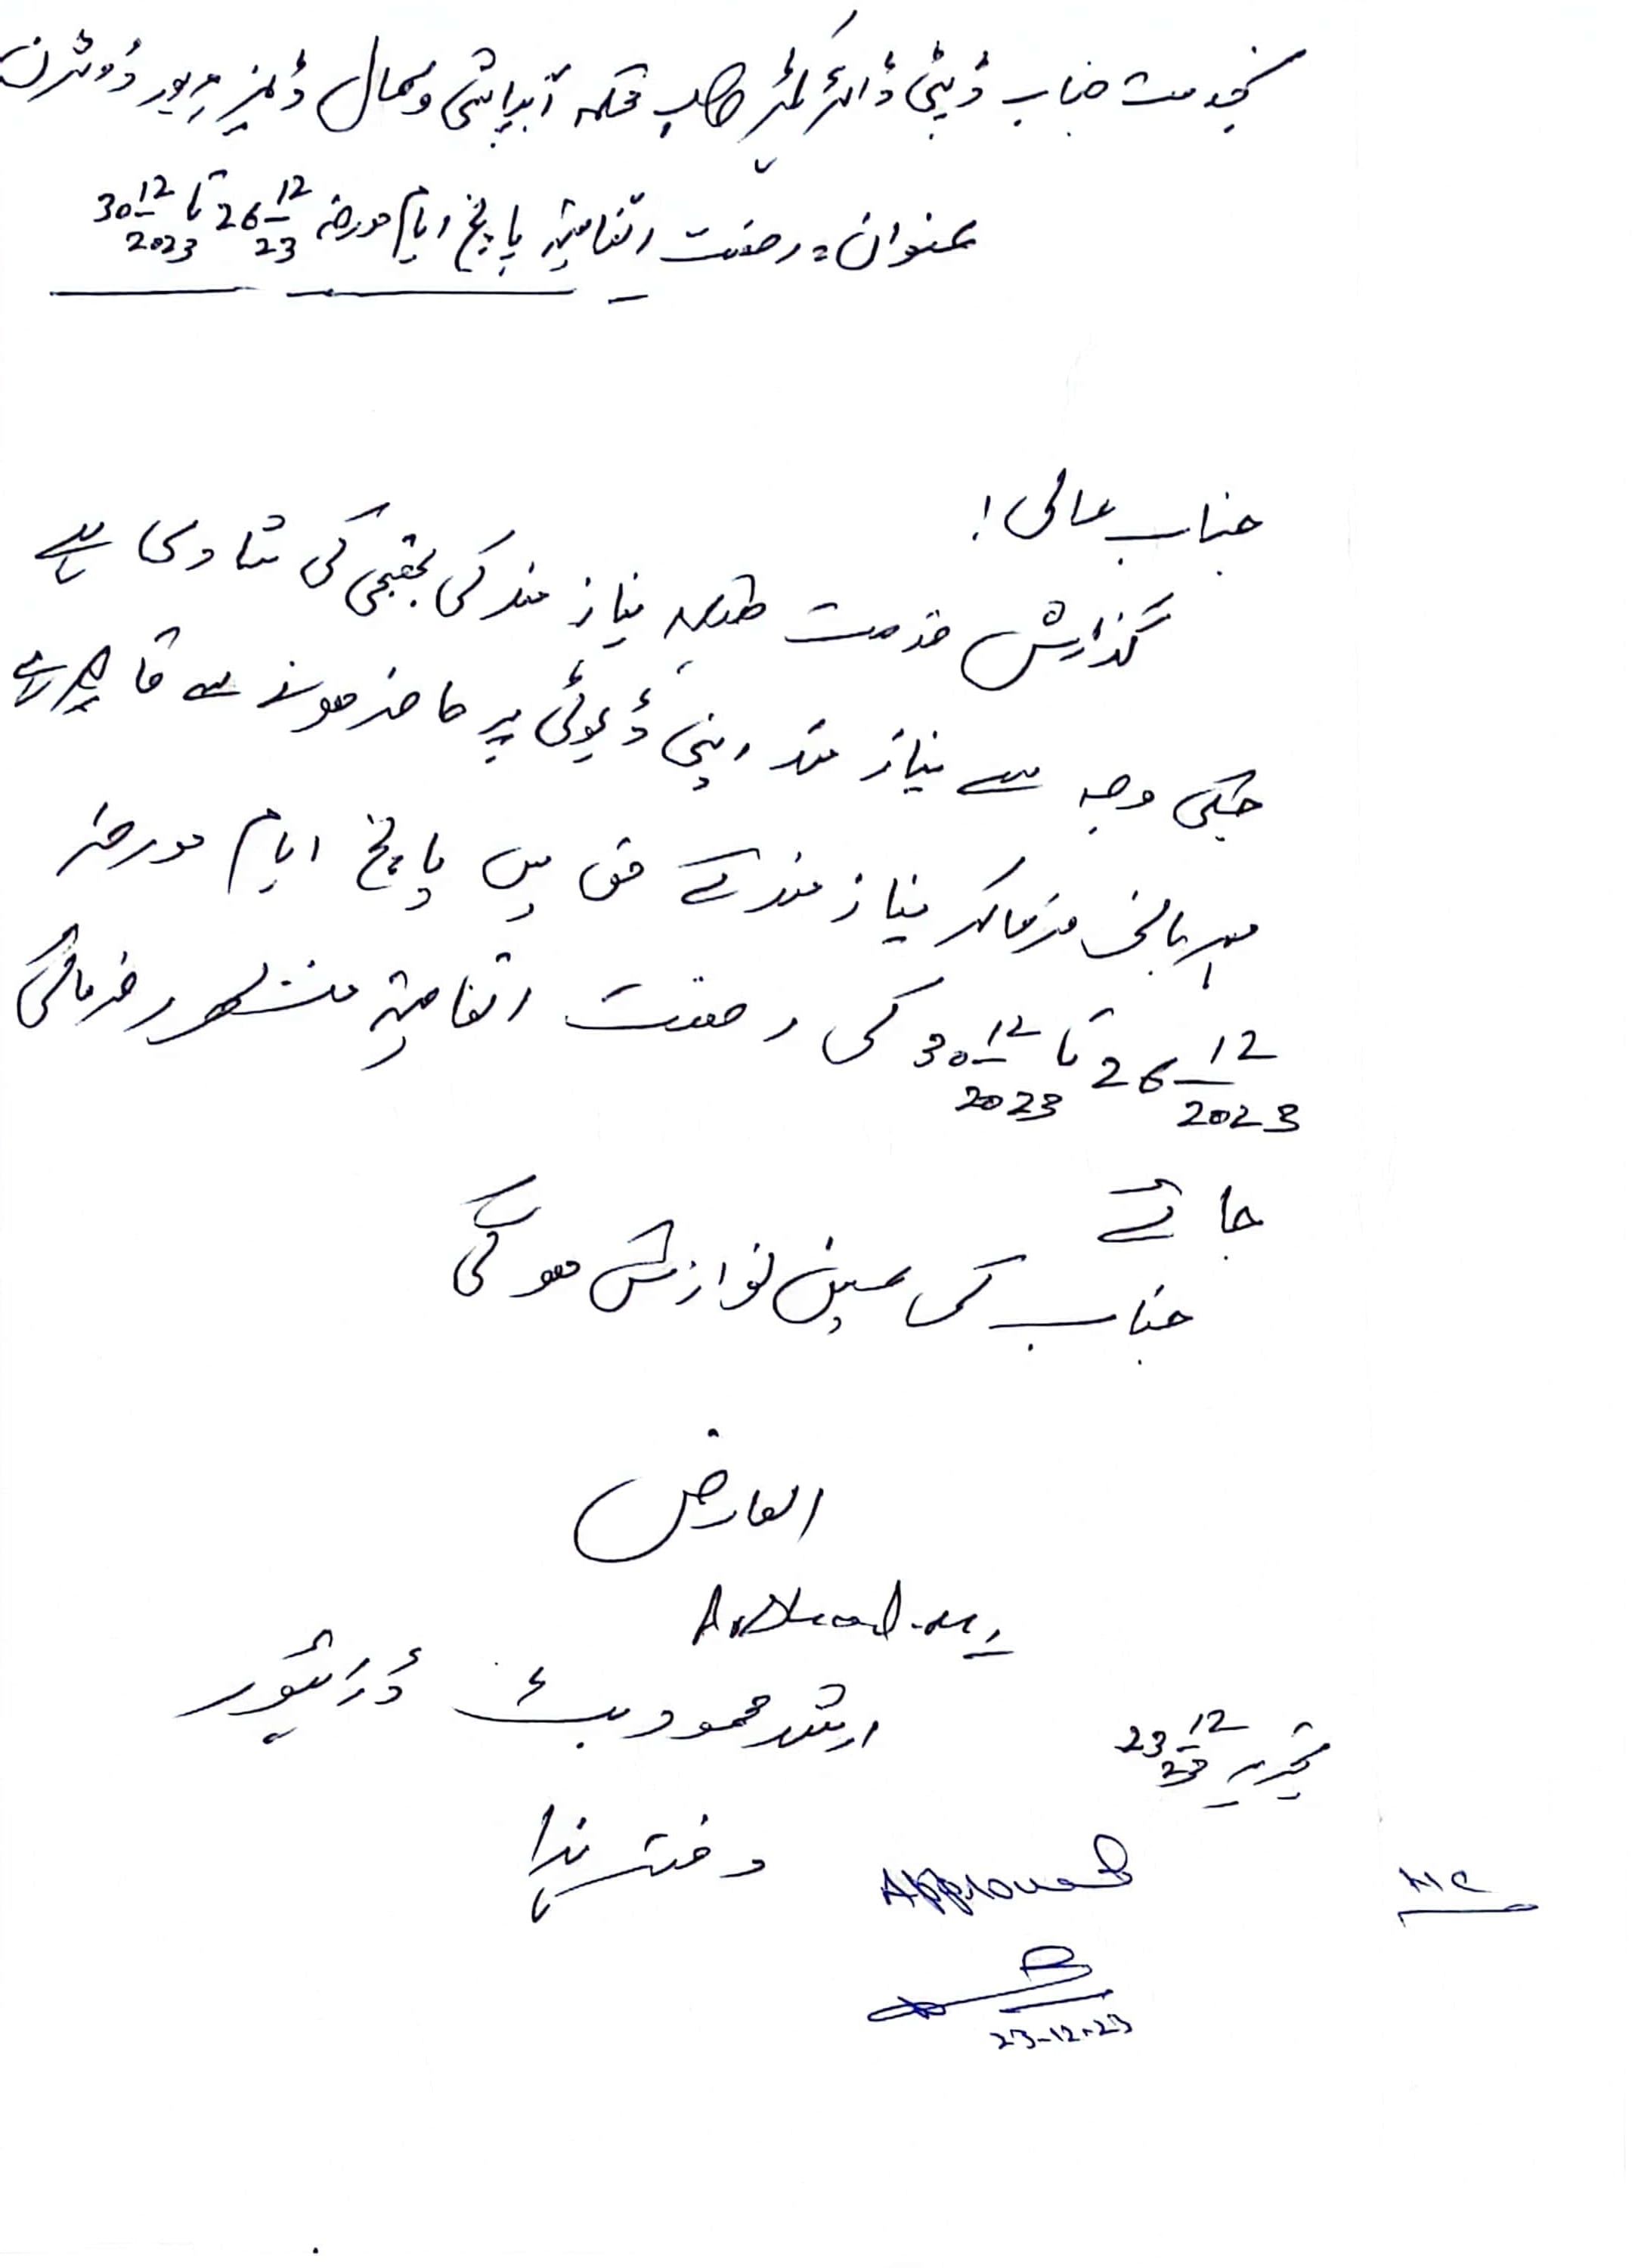 بخدمت جناب ڈپٹی ڈائریکٹر صاحب محکمہ آبپاشی وسمال ڈیمز میرپور ڈویثرن
عنوان= رخصت اتفاقیہ پانچ ایام مورخہ 26-12-23 تا 30-12-2023
جناب عالی!
گذارش خدمت ھیکہ نیاز مند کی بھتیجی کی شادی ہے
جسکی وجہ سے نیاز مند اپنی ڈیوٹی پر حاضر ھونے سے قاصر ہے
مہربانی فرماکر نیاز مند کے حق میں پانچ ایام مورخہ
26-12-2023 تا 30-12-2023 کی رخصت اتفاقیہ منظور فرمائی
جائے
جناب کی عین نوازش ھوگی
العارض
Arshad.M
ارشد محمود بٹ ڈرائیور
تحریر 23-12-23
دفتر ہذا
Approved
HC
23-12-23